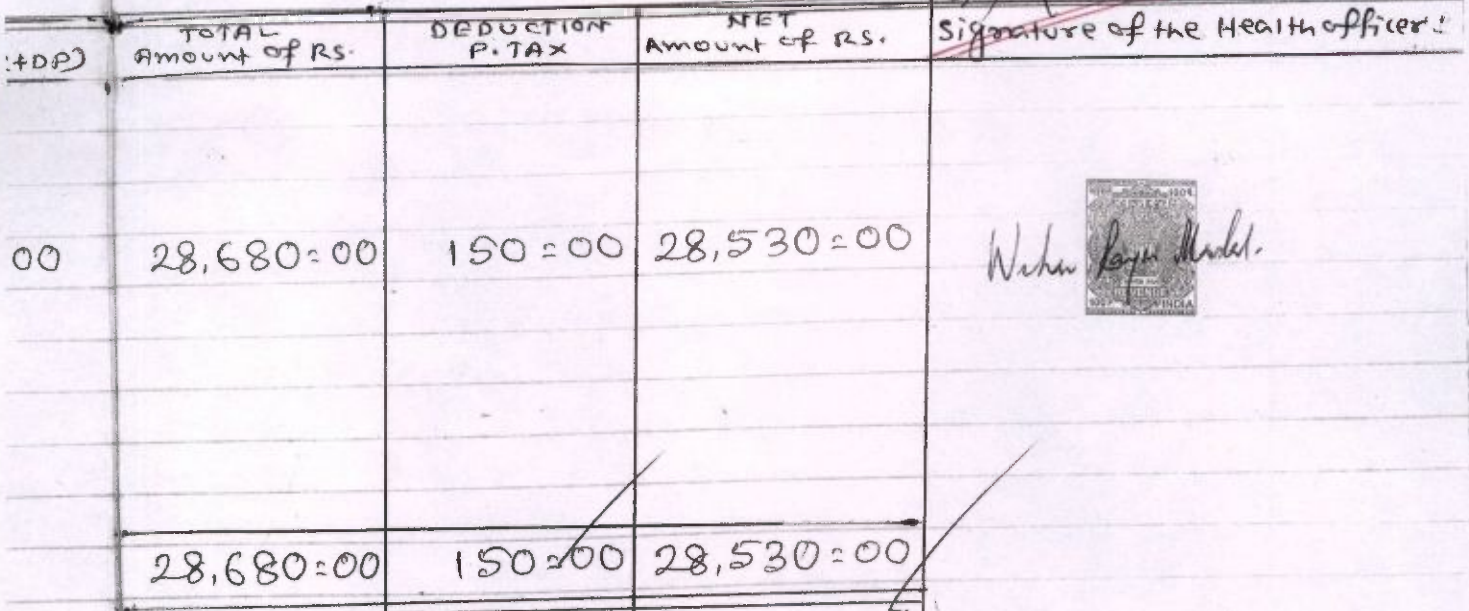 TOTAL Amount of RS.
DEDUCTION P.TAX
NET Amount of RS.
Signature of the Health officer:
+DP)
00 28,680=00 150=00 28,530=00
REVENUE
INDIA
28,680=00 150=00 28,530=00